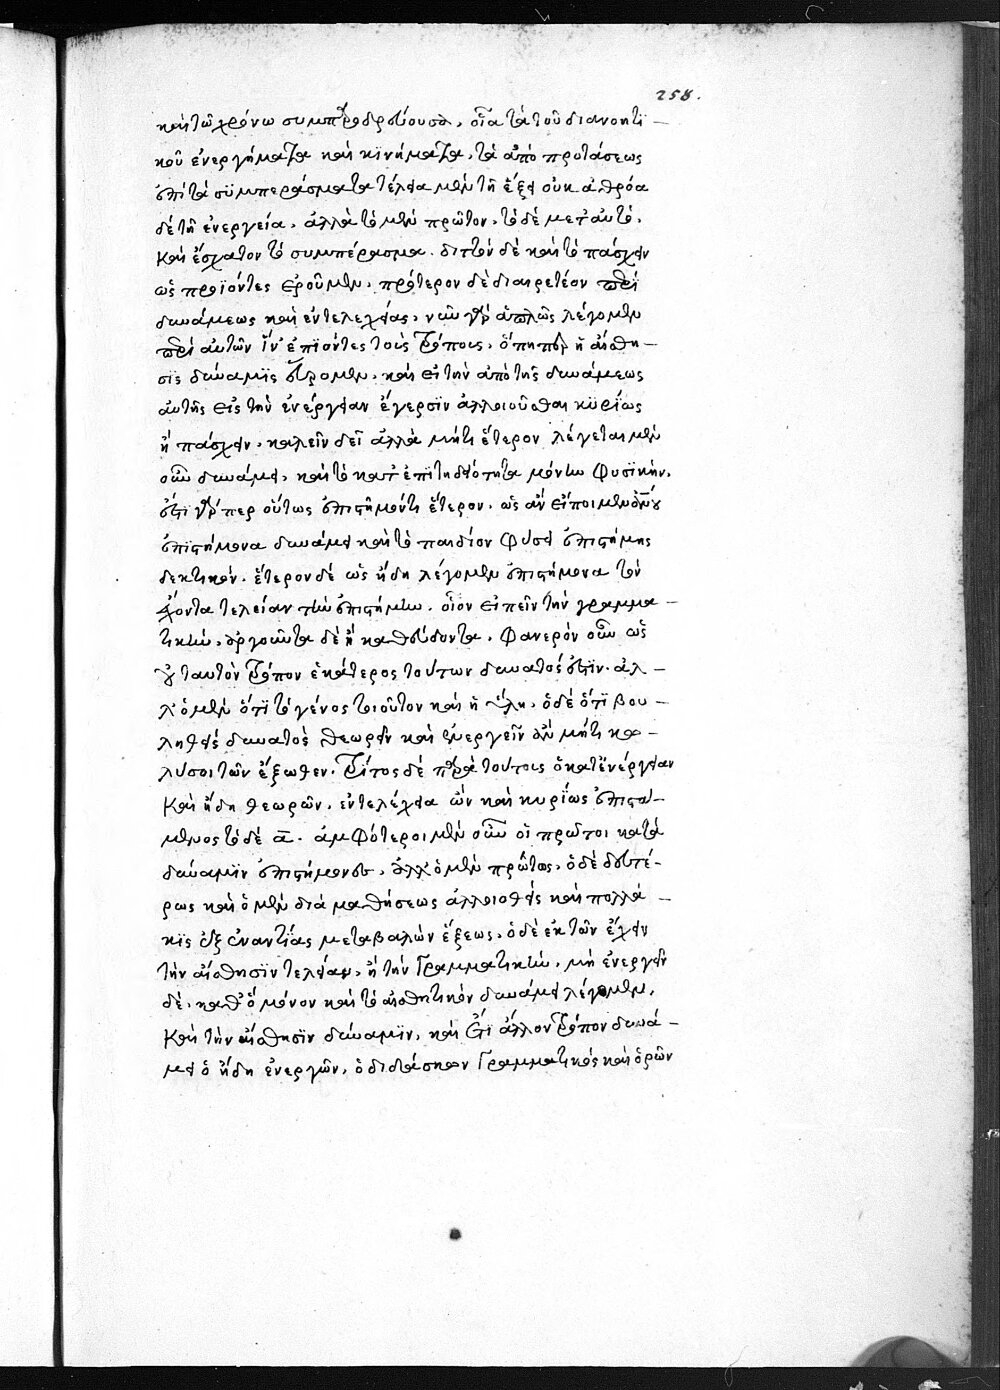 258.
καὶ τῶ χρόνω συμπροδεύουσα, οἷα τὰ τοῦ διανοητι –
κοῦ ἐνεργήματα καὶ κϊνήματα, τὰ ἀπὸ προτάσεως
ἐπὶ τὰ συμπεράσματα τέλεια μὲν τῆ ἕξει οὐκ ἀθρόα
δὲ τῆ ἐνεργεία, ἀλλὰ τὸ μὲν πρῶτον, τὸ δὲ μετ' αὐτὸ,
καὶ ἔσχατον τὸ συμπέρασμα. διττὸν δὲ καὶ τὸ πάσχειν
ὡς προϊόντες ἐροῦμεν, πρότερον δὲ διαιρετέον περὶ
δυνάμεως καὶ ἐντελεχείας, νῦν γὰρ ἁπλῶς λέγομεν
περὶ αὐτῶν ἵν' ἐπϊόντες τοὺς τρόπους, ὅπηπερ ἡ αἴσθη –
σϊς δύναμϊς εὕρομεν, καὶ εἰ τὴν ἀπὸ τῆς δυνάμεως
αὐτῆς εἰς τὴν ἐνέργειαν ἔγερσϊν ἀλλοιοῦσθαι κυρίως
ἢ πάσχειν, καλεῖν δεῖ ἀλλὰ μήτι ἕτερον λέγεται μὲν
οὖν δυνάμει, καὶ τὸ κατ' ἐπϊτηδειότητα μόνην φυσϊκὴν,
ἔστι γάρ περ οὕτως ἐπιστῆμόν τι ἕτερον, ὡς ἂν εἴποιμεν
ἐπϊστήμονα δυνάμει καὶ τὸ παιδίον φύσει ἐπιστήμης
δεκτικόν. ἕτερον δὲ ὡς ἤδη λέγομεν ἐπιστήμονα τὸν
ἔχοντα τελείαν τὴν ἐπιστήμην. οἷον εἰπεῖν τὴν γραμμα –
τικὴν, ἀργοῦντα δὲ ἢ καθεύδοντα. Φανερὸν οὖν ὡς
οὐ ταυτὸν τρόπον ἑκάτερος τούτων δυνατός ἐστϊν. ἀλ –
λ' ὁ μὲν ὅτϊ τὸ γένος τοιοῦτον καὶ ἡ ὕλη, ὁ δὲ ὅτϊ βου –
ληθεὶς δυνατὸς θεωρεῖν καὶ ἐνεργεῖν ἂν μήτι κω –
λύσοι τῶν ἔξωθεν. Τρίτος δὲ παρὰ τούτοις ὁ κατ' ἐνέργειαν
καὶ ἤδη θεωρῶν, ἐντελέχεια ὢν καὶ κυρίως ἐπιστά –
μενος τὸ δὲ α. ἀμφότεροι μὲν οὖν οἱ πρῶτοι κατὰ
δύναμϊν ἐπιστήμονες, ἀλλ' ὁ μὲν πρώτως, ὁ δὲ δευτέ –
ρως καὶ ὁ μὲν διὰ μαθήσεως ἀλλοιωθεὶς καὶ πολλά –
κϊς ἐξ ἐναντίας μεταβαλὼν ἕξεως, ὁ δὲ ἐκ τῶν ἔχειν
τὴν αἴσθησϊν τελείαν, ἢ τὴν Γραμματικὴν, μὴ ἐνεργεῖν
δὲ, καθ' ὃ μόνον καὶ τὸ αἰσθητικὸν δυνάμει λέγομεν,
καὶ τὴν αἴσθησϊν δύναμϊν, καὶ ἔτϊ ἄλλον τρόπον δυνά –
μει ὁ ἤδη ἐνεργῶν, ὁ διδάσκων Γραμματικὸς καὶ ὁρῶν